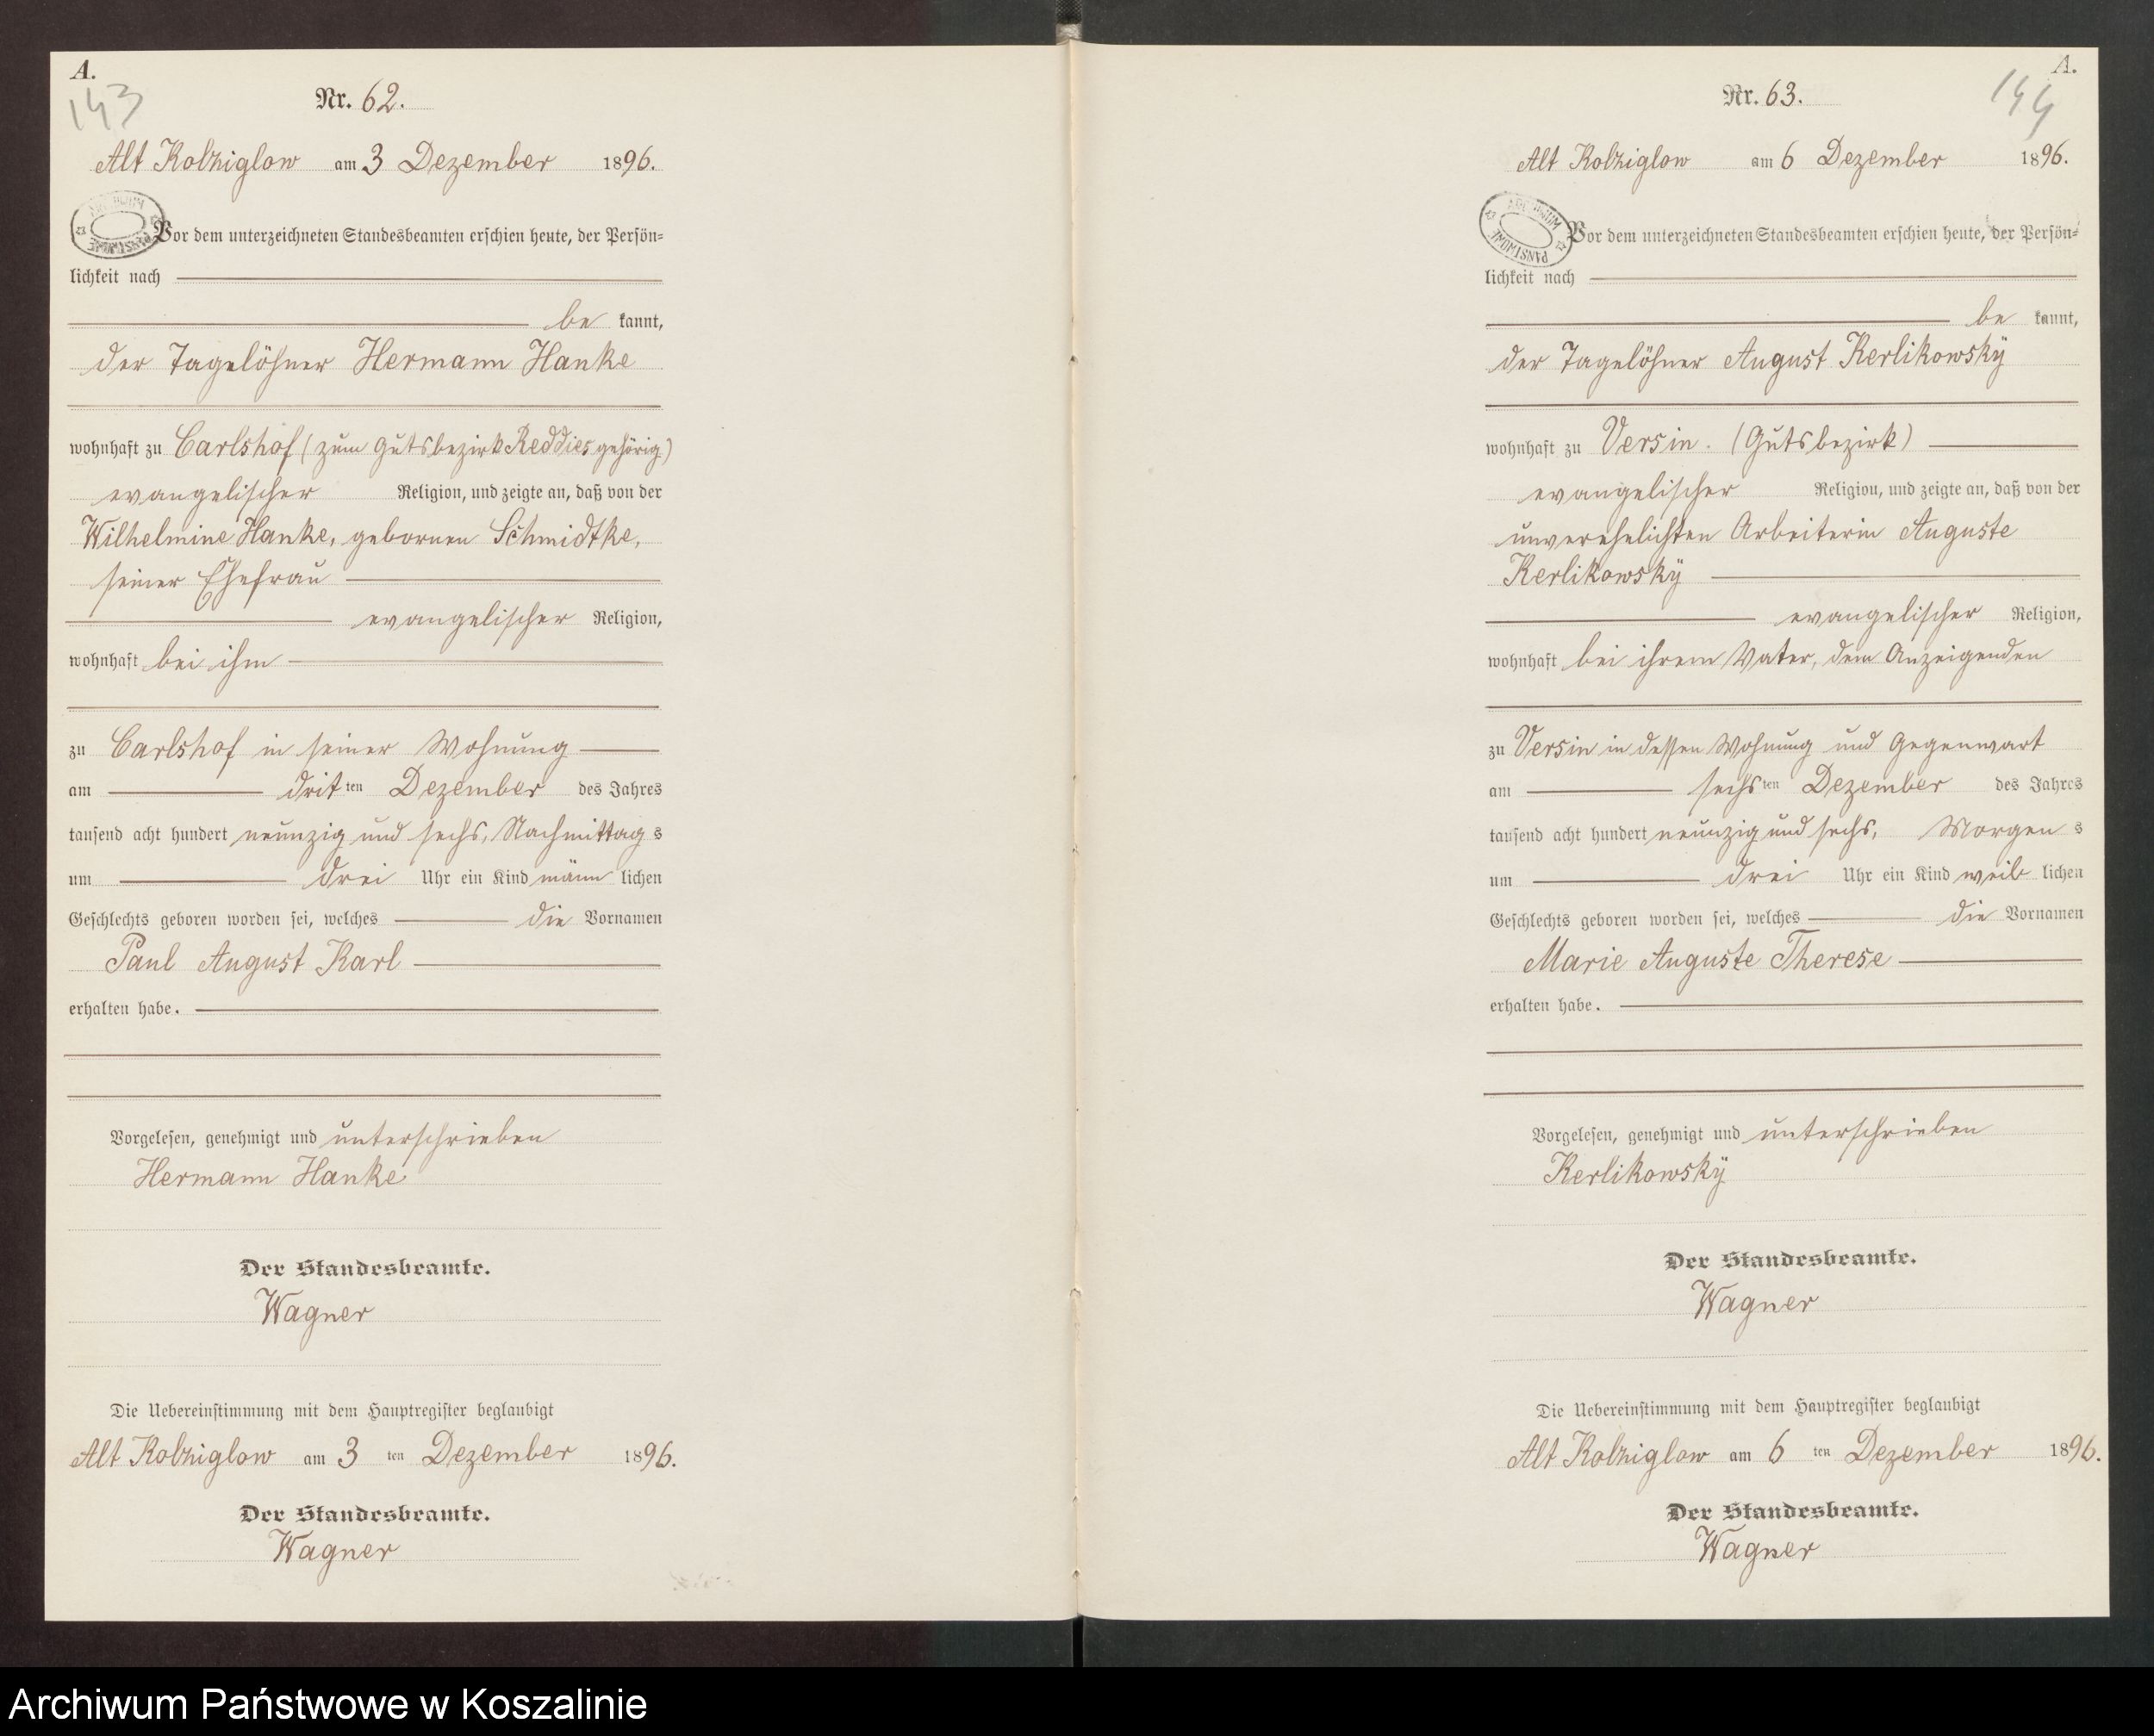 A.
143
Nr. 62.
Alt Kolziglow am 3 Dezember 1896.
ARCHIWUM PAŃSTWOWE
Vor dem unterzeichneten Standesbeamten erschien heute, der Persön-
lichkeit nach
be kannt,
der Tagelöhner Hermann Hanke
wohnhaft zu Carlshof (zum Gutsbezirk Reddies gehörig)
evangelischer Religion, und zeigte an, daß von der
Wilhelmine Hanke, gebornen Schmidtke,
seiner Ehefrau
evangelischer Religion,
wohnhaft bei ihm
zu Carlshof in seiner Wohnung
am dritten Dezember des Jahres
tausend acht hundert neunzig und sechs, Nachmittag s
um drei Uhr ein Kind männ lichen
Geschlechts geboren worden sei, welches die Vornamen
Paul August Karl
erhalten habe.
Vorgelesen, genehmigt und unterschrieben
Hermann Hanke
Der Standesbeamte.
Wagner
Die Uebereinstimmung mit dem Hauptregister beglaubigt
Alt Kolziglow am 3 ten Dezember 1896.
Der Standesbeamte.
Wagner
A.
144
Nr. 63.
Alt Kolziglow am 6 Dezember 1896.
ARCHIWUM PAŃSTWOWE
Vor dem unterzeichneten Standesbeamten erschien heute, der Persön-
lichkeit nach
be kannt,
der Tagelöhner August Kerlikowsky
wohnhaft zu Versin. (Gutsbezirk)
evangelischer Religion, und zeigte an, daß von der
unverehelichten Arbeiterin Auguste
Kerlikowsky
evangelischer Religion,
wohnhaft bei ihrem Vater, dem Anzeigenden
zu Versin in dessen Wohnung und Gegenwart
am sechsten Dezember des Jahres
tausend acht hundert neunzig und sechs, Morgen s
um drei Uhr ein Kind weib lichen
Geschlechts geboren worden sei, welches die Vornamen
Marie Auguste Therese
erhalten habe.
Vorgelesen, genehmigt und unterschrieben
Kerlikowsky
Der Standesbeamte.
Wagner
Die Uebereinstimmung mit dem Hauptregister beglaubigt
Alt Kolziglow am 6 ten Dezember 1896.
Der Standesbeamte.
Wagner
Archiwum Państwowe w Koszalinie